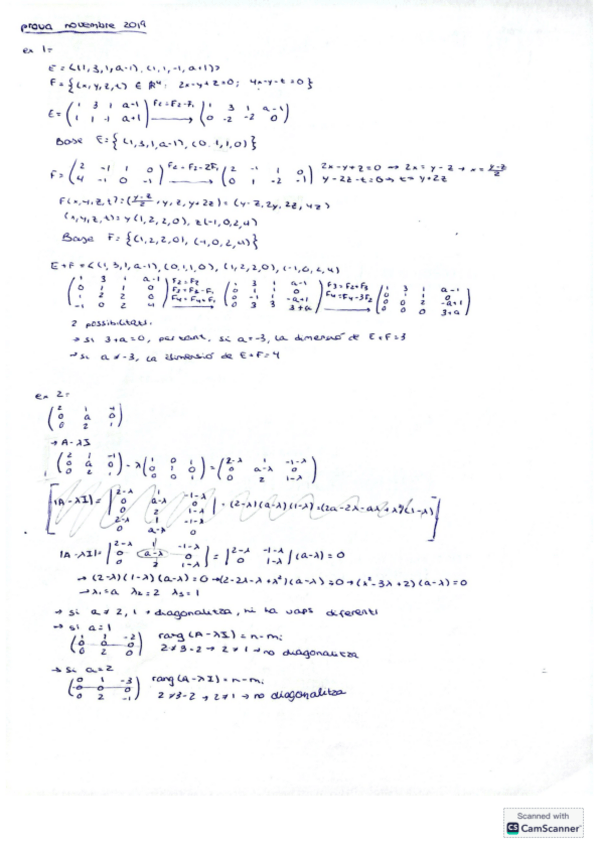 prova novembre 2019
ex 1:
E = <(1, 3, 1, a-1), (1, 1, -1, a+1)>
F = {(x, y, z, t) ∈ R⁴; 2x-y+z=0; 4x-y-t=0}
E = (1 3 1 a-1 / 1 1 -1 a+1) F2=F2-F1 → (1 3 1 a-1 / 0 -2 -2 0)
Base E = {(1,3,1,a-1), (0,1,1,0)}
F = (2 -1 1 0 / 4 -1 0 -1) F2=F2-2F1 → (2 -1 1 0 / 0 1 -2 -1) 2x-y+z=0 → 2x = y-z → x = y-z/2
y-2z-t=0 → t=y+2z
(x,y,z,t) = y(1,2,2,0), z(-1,0,2,4)
Base F = {(1,2,2,0), (-1,0,2,4)}
E+F = <(1,3,1,a-1), (0,1,1,0), (1,2,2,0), (-1,0,2,4)
(1 3 1 a-1 / 0 1 1 0 / 1 2 2 0 / -1 0 2 4) F2=F2 F3=F3-F1 F4=F4+F1 → (1 3 1 a-1 / 0 1 1 0 / 0 -1 1 -a+1 / 0 3 3 3+a) F3=F2+F3 F4=F4-3F2 → (1 3 1 a-1 / 0 1 1 0 / 0 0 2 -a+1 / 0 0 0 3+a)
2 possibilitats.
→ si 3+a=0, per tant, si a=-3, la dimensió de E+F=3
→ si a≠-3, la dimensió de E+F=4
ex 2:
(2 1 -1 / 0 a 0 / 0 2 1)
→ A-λI
(2 1 -1 / 0 a 0 / 0 2 1) - λ(1 0 1 / 0 1 0 / 0 0 1) = (2-λ 1 -1-λ / 0 a-λ 0 / 0 2 1-λ)
|A-λI| = |2-λ 1 -1-λ / 0 a-λ 0 / 0 2 1-λ / 2-λ 1 -1-λ / 0 a-λ 0| = (2-λ)(a-λ)(1-λ) = (2a-2λ-aλ+λ²)(1-λ)
|A-λI| = |2-λ 1 -1-λ / 0 a-λ 0 / 0 2 1-λ| = |2-λ -1-λ / 0 1-λ| (a-λ) = 0
→ (2-λ)(1-λ)(a-λ)=0 → (2-2λ-λ+λ²)(a-λ)=0 → (λ²-3λ+2)(a-λ)=0
→ λ1=a λ2=2 λ3=1
→ si a≠2, 1 → diagonalitza, hi ha vaps diferents
→ si a=1
(1 1 -2 / 0 a 0 / 0 2 0) rang(A-λI)=n-mi
2≠3-2 → 2≠1 → no diagonalitza
→ si a=2
(0 1 -3 / 0 0 0 / 0 2 -1) rang(A-λI)=n-mi
2≠3-2 → 2≠1 → no diagonalitza
Scanned with
CS CamScanner